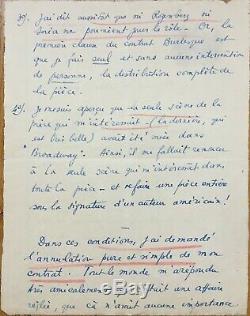 3º/. J'ai dit aussitôt que ni Rigembery ni
Inéa ne pouvaient jouer le rôle. Or, la
première clause du contrat Burlesque est
que je fais seul et sans aucune intervention
de personne, la distribution complète de
la pièce.
4º/. Je me suis aperçu que la seule scène de la
pièce qui m'intéressait (la dernière, qui
est très belle) avait été mise dans
Broadway! Ainsi, il me fallait renoncer
à la seule scène qui m'intéressait dans
toute la pièce — et refaire une pièce entière
sous la signature d'un auteur américain!
Dans ces conditions, j'ai demandé
l'annulation pure et simple de mon
contrat. Tout le monde m'a répondu
très amicalement que c'était une affaire
réglée, que ça n'avait aucune importance